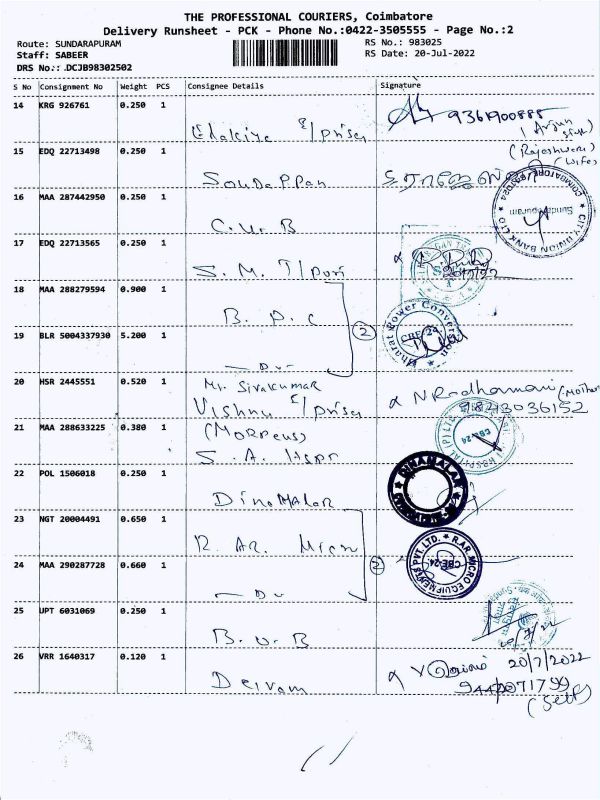 THE PROFESSIONAL COURIERS, Coimbatore
Delivery Runsheet - PCK - Phone No.:0422-3505555 - Page No.:2
Route: SUNDARAPURAM
Staff: SABEER
DRS No.:.DCJB98302502
RS No.: 983025
RS Date: 20-Jul-2022
S No Consignment No Weight PCS Consignee Details Signature
14 KRG 926761 0.250 1
(Arjun
15 EDQ 22713498 0.250 1 (Rajeshwari)
(Wife)
Soudappan
16 MAA 287442950 0.250 1
C.U.B
CITY UNION BANK LTD
Sundarapuram
17 EDQ 22713565 0.250 1
S. M. T/port
20/7/22
18 MAA 288279594 0.900 1
B. P. C
2
19 BLR 5004337930 5.200 1
Bharat Power Conversion
CBE-24
— Do —
20 HSR 2445551 0.520 1 Mr. Sivakumar
Vishnu E/prises
N Radhamani (Mother)
9843036152
21 MAA 288633225 0.380 1 (Morpeus)
CBE-24
22 POL 1506018 0.250 1
Dinamalar
DINAMALAR
23 NGT 20004491 0.650 1
R. AR. Micro
2
R.AR. MICRO EQUIPMENTS PVT. LTD.
CBE-24.
24 MAA 290287728 0.660 1
— Do
25 UPT 6031069 0.250 1
B. O. B
20/7/22
26 VRR 1640317 0.120 1
20/7/2022
Deivam
9442071799
(Self)